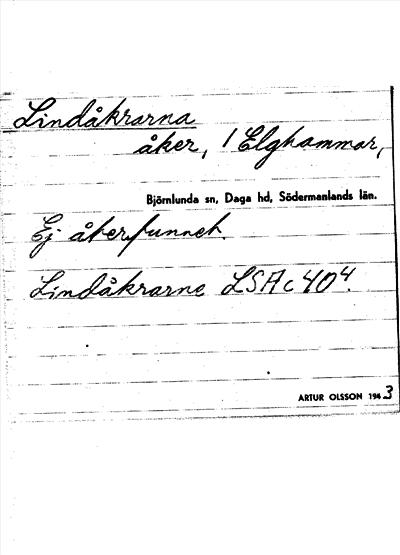 Lindåkrarna
åker, / Elghammar,
Björnlunda sn, Daga hd, Södermanlands län.
Ej återfunnet.
Lindåkrarne LSA c 40⁴.
ARTUR OLSSON 1943